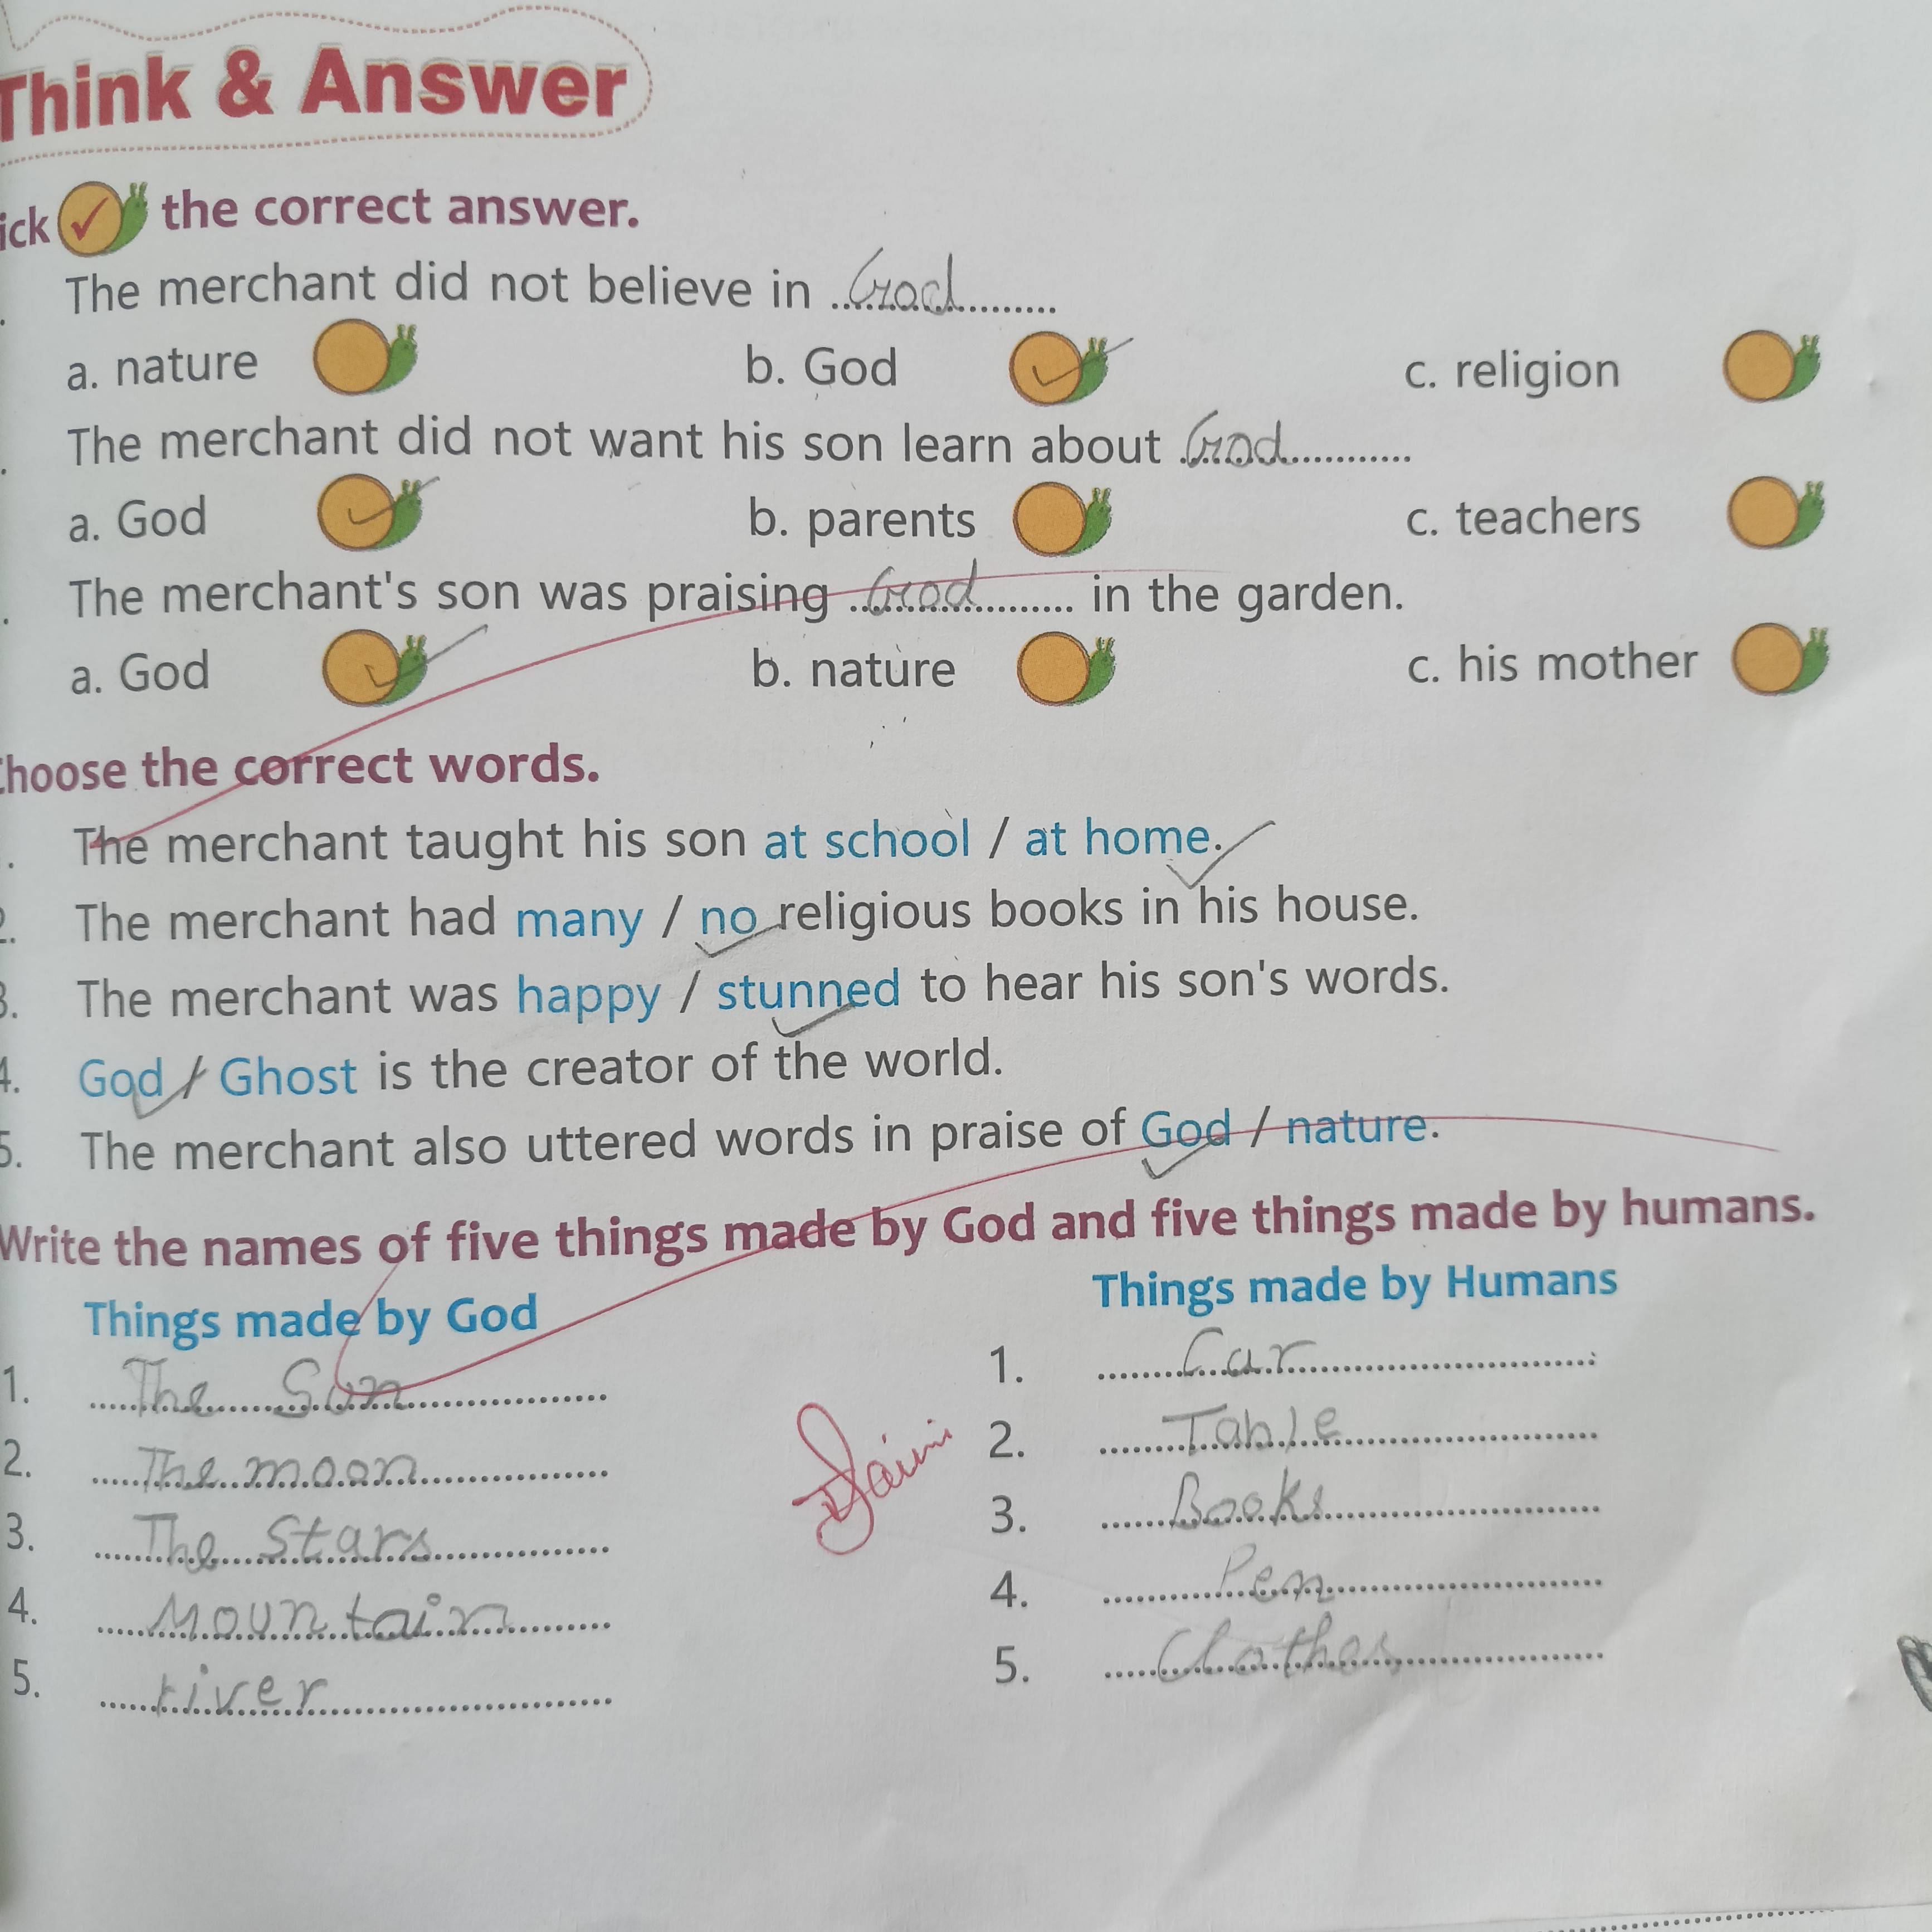 Think & Answer
ick the correct answer.
The merchant did not believe in ..God..........
a. nature b. God c. religion
The merchant did not want his son learn about God............
a. God b. parents c. teachers
The merchant's son was praising ..God.......... in the garden.
a. God b. nature c. his mother
hoose the correct words.
The merchant taught his son at school / at home.
2. The merchant had many / no religious books in his house.
3. The merchant was happy / stunned to hear his son's words.
4. God / Ghost is the creator of the world.
5. The merchant also uttered words in praise of God / nature.
Write the names of five things made by God and five things made by humans.
Things made by God Things made by Humans
1. The Sun 1. Car
2. The moon 2. Table
3. The Stars 3. Books
4. Mountain 4. Pen
5. river 5. Clothes